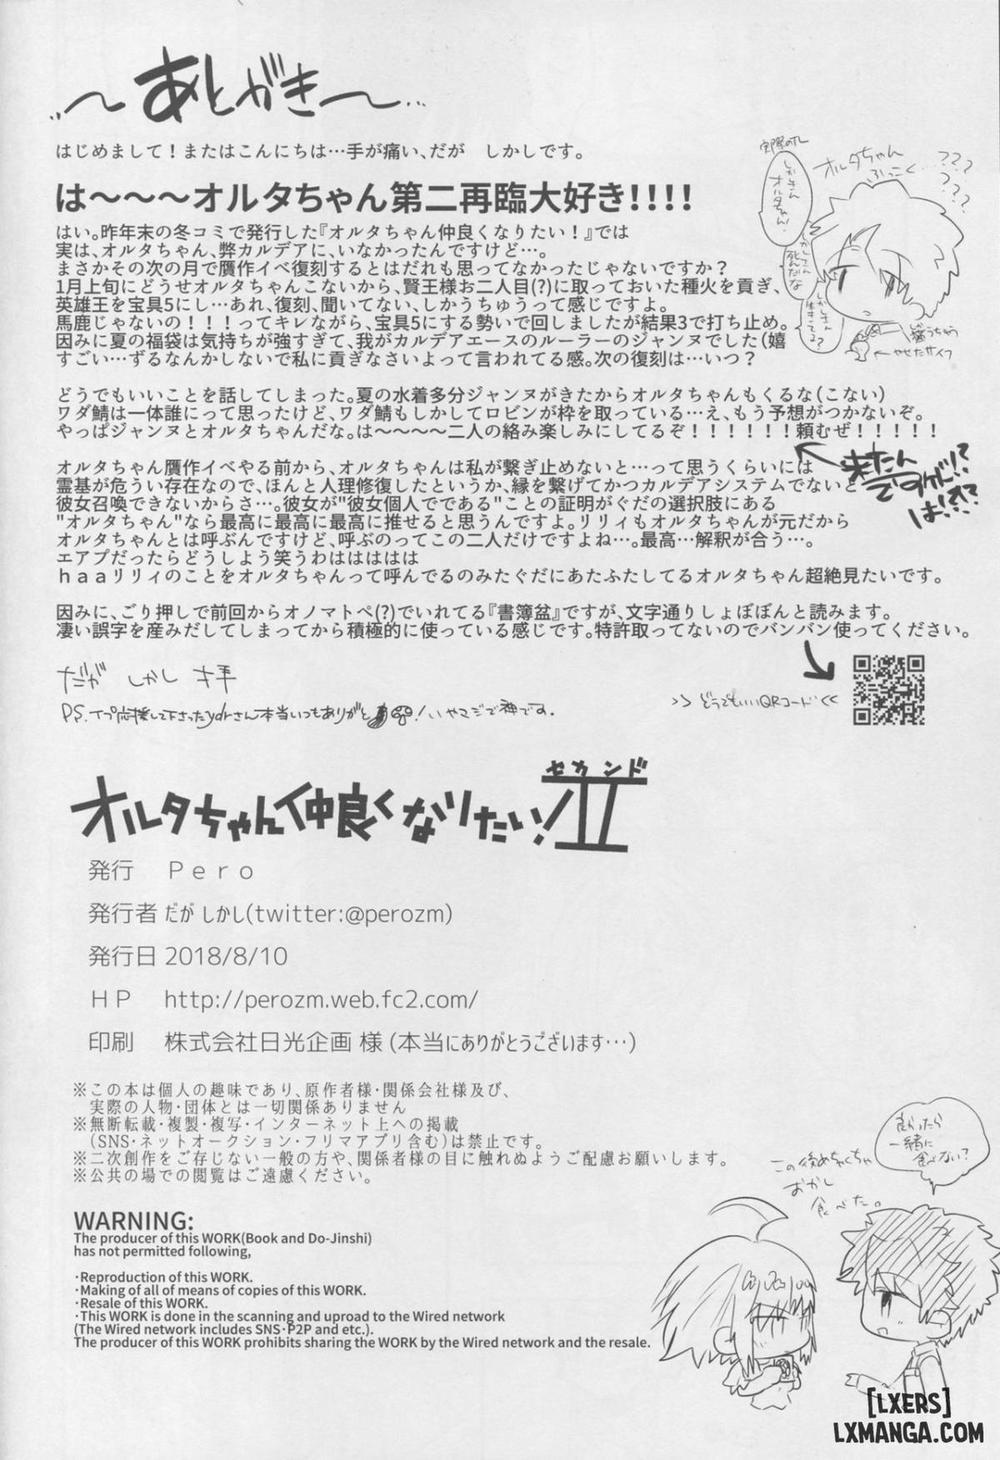 ～あとがき～
はじめまして！またはこんにちは…手が痛い、だが　しかしです。
は～～～オルタちゃん第二再臨大好き！！！！
はい。昨年末の冬コミで発行した『オルタちゃん仲良くなりたい！』では
実は、オルタちゃん、弊カルデアに、いなかったんですけど…。
まさかその次の月で贋作イベ復刻するとはだれも思ってなかったじゃないですか？
1月上旬にどうせオルタちゃんこないから、賢王様お二人目(?)に取っておいた種火を貢ぎ、
英雄王を宝具5にし…あれ、復刻、聞いてない、しかうちゅうって感じですよ。
馬鹿じゃないの！！！ってキレながら、宝具5にする勢いで回しましたが結果3で打ち止め。
因みに夏の福袋は気持ちが強すぎて、我がカルデアエースのルーラーのジャンヌでした(嬉
すごい…ずるなんかしないで私に貢ぎなさいよって言われてる感。次の復刻は…いつ？
どうでもいいことを話してしまった。夏の水着多分ジャンヌがきたからオルタちゃんもくるな(こない)
ワダ鯖は一体誰にって思ったけど、ワダ鯖もしかしてロビンが枠を取っている…え、もう予想がつかないぞ。
やっぱジャンヌとオルタちゃんだな。は～～～～二人の絡み楽しみにしてるぞ！！！！！！頼むぜ！！！！！
来たんですけど!?は!?!?
オルタちゃん贋作イベやる前から、オルタちゃんは私が繋ぎ止めないと…って思うくらいには
霊基が危うい存在なので、ほんと人理修復したというか、縁を繋げてかつカルデアシステムでないと
彼女召喚できないからさ…。彼女が"彼女個人でである"ことの証明がぐだの選択肢にある
"オルタちゃん"なら最高に最高に最高に推せると思うんですよ。リリィもオルタちゃんが元だから
オルタちゃんとは呼ぶんですけど、呼ぶのってこの二人だけですよね…。最高…解釈が合う…。
エアプだったらどうしよう笑うわはははは
ｈａａリリィのことをオルタちゃんって呼んでるのみたぐだにあたふたしてるオルタちゃん超絶見たいです。
因みに、ごり押しで前回からオノマトペ(?)でいれてる『書簿盆』ですが、文字通りしょぼぼんと読みます。
凄い誤字を産みだしてしまってから積極的に使っている感じです。特許取ってないのでバンバン使ってください。
だが しかし 拝
>> どうでもいいQRコード <<
オルタちゃん仲良くなりたい！II
セカンド
発行　Ｐｅｒｏ
発行者 だが しかし(twitter:@perozm)
発行日 2018/8/10
ＨＰ　http://perozm.web.fc2.com/
印刷　株式会社日光企画 様 (本当にありがとうございます…)
※この本は個人の趣味であり、原作者様・関係会社様及び、
実際の人物・団体とは一切関係ありません
※無断転載・複製・複写・インターネット上への掲載
(SNS・ネットオークション・フリマアプリ含む)は禁止です。
※二次創作をご存じない一般の方や、関係者様の目に触れぬようご配慮お願いします。
※公共の場での閲覧はご遠慮ください。
WARNING:
The producer of this WORK(Book and Do-Jinshi)
has not permitted following,
・Reproduction of this WORK.
・Making of all of means of copies of this WORK.
・Resale of this WORK.
・This WORK is done in the scanning and uproad to the Wired network
(The Wired network includes SNS・P2P and etc.).
The producer of this WORK prohibits sharing the WORK by the Wired network and the resale.
よかったら
一緒に
食べない？
この後めちゃくちゃ
おかし
食べた。
[LXERS]
LXMANGA.COM